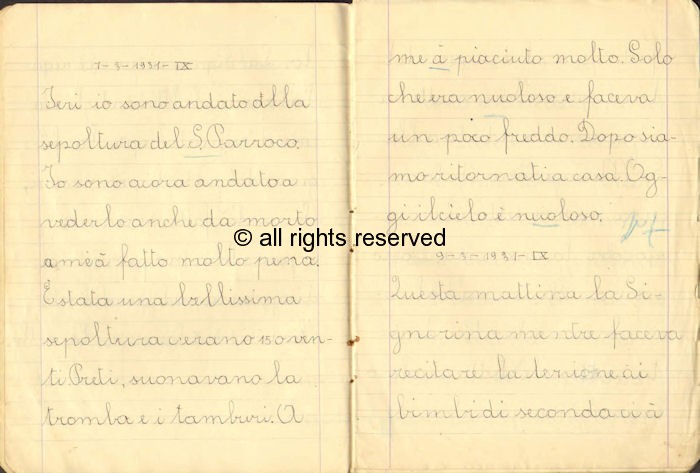 7-3-1931-IX
Ieri io sono andato alla
sepoltura del S. Parroco.
Io sono acora andato a
vederlo anche da morto
a me à fatto molto pena.
È stata una bellissima
sepoltura cverano 15 o ven-
ti Preti, suonavano la
tromba e i tamburi. A
me à piaciuto molto. Solo
che era nuoloso e faceva
un poco freddo. Dopo sia-
mo ritornati a casa. Og-
gi il cielo è nuoloso.
9-3-1931-IX
Questa mattina la Si-
gnorina mentre faceva
recitare la lezione ai
bimbi di seconda ci à
© all rights reserved